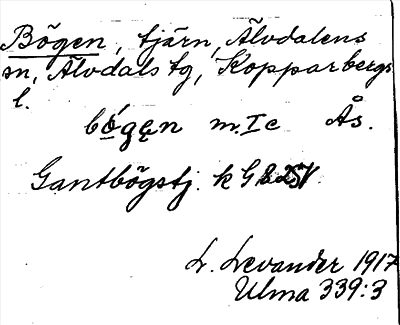 Bögen, tjärn, Älvdalens
sn, Älvdals tg, Kopparbergs
l.
bógęn m.Ie Ås.
Gantbögstj. k G
L. Levander 1917
Ulma 339:3